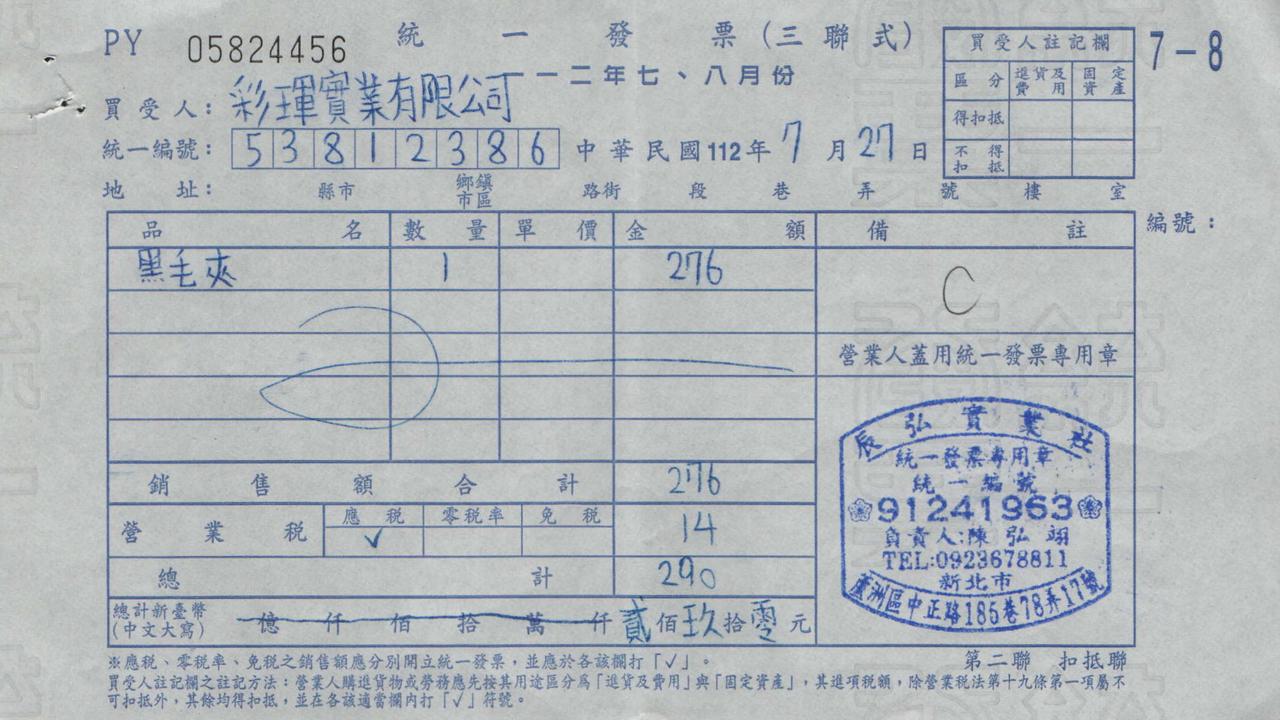 PY 05824456 統一發票(三聯式)
一一二年七、八月份
7-8
買受人註記欄
區分 進貨及費用 固定資產
得扣抵
不得扣抵
買受人: 彩琿實業有限公司
統一編號: 53812386 中華民國112年7月27日
地址: 縣市 鄉鎮市區 路街 段 巷 弄 號 樓 室
品名 數量 單價 金額 備註 編號:
黑毛夾 1 276 C
營業人蓋用統一發票專用章
銷售額合計 276
營業稅 應稅 零稅率 免稅 14
✓
總計 290
總計新臺幣(中文大寫) 億 仟 佰 拾 萬 仟 貳佰玖拾零元
辰弘實業社
統一發票專用章
統一編號
91241963
負責人:陳弘翊
TEL:0923678811
新北市
蘆洲區中正路185巷78弄17號
※應稅、零稅率、免稅之銷售額應分別開立統一發票,並應於各該欄打「✓」。
第二聯 扣抵聯
買受人註記欄之註記方法:營業人購進貨物或勞務應先按其用途區分為「進貨及費用」與「固定資產」,其進項稅額,除營業稅法第十九條第一項屬不
可扣抵外,其餘均得扣抵,並在各該適當欄內打「✓」符號。